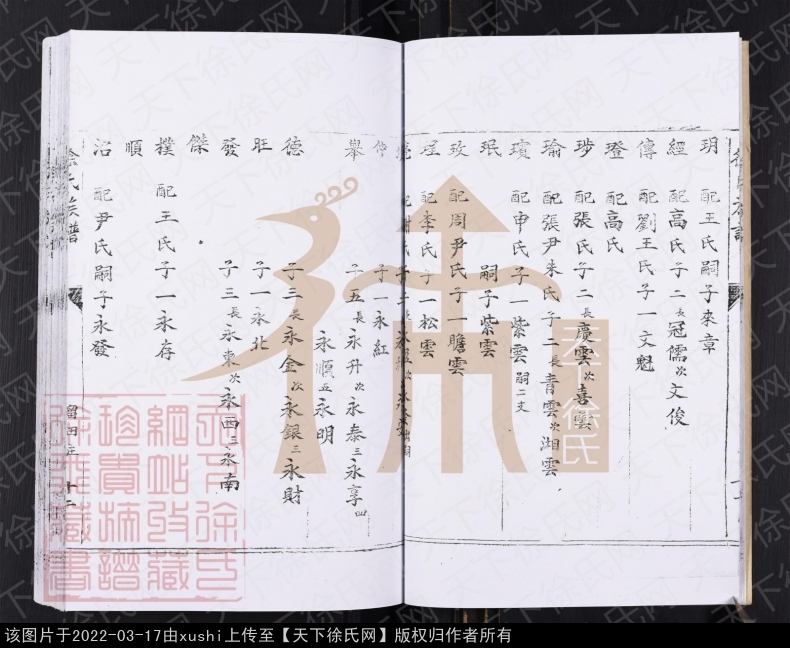 玥 配王氏嗣子來章
經 配高氏子二長冠儒次文俊
傳 配劉王氏子一文魁
璒 配高氏
珍 配張氏子二長慶雲次喜雲
瑜 配張尹朱氏子二長青雲次湘雲
瓊 配申氏子一紫雲嗣二支
珉 嗣子紫雲
玫 配周尹氏子一瞻雲
珵 配李氏子一松雲
子一永紅
舉 子五長永升次永泰三永享四
永順五永明
德 子三長永金次永銀三永財
旺 子一永北
發 子三長永東次永西三永南
傑
樸 配王氏子一永存
順
治 配尹氏嗣子永發
徐氏族譜
留田庄 十二
本徐氏
天下徐氏
網站收藏
珍貴族譜
徐雅藏書
天下徐氏网
该图片于2022-03-17由xushi上传至【天下徐氏网】版权归作者所有